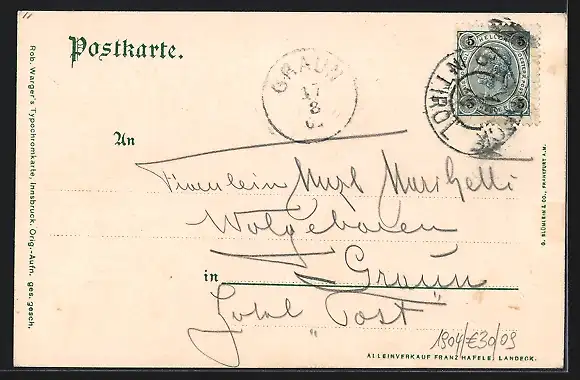 Postkarte.
GRAUN
17
8
5 HELLER 5
TIROL
An
Fräulein Mizl Marchetti
Wolgeboren
in Graun
Hotel "Post"
1904/€30/09
ALLEINVERKAUF FRANZ HAFELE, LANDECK.
Rob. Warger's Typochromkarte, Innsbruck. Orig.-Aufn. ges. gesch.
G. BLÜMLEIN & CO., FRANKFURT A.M.